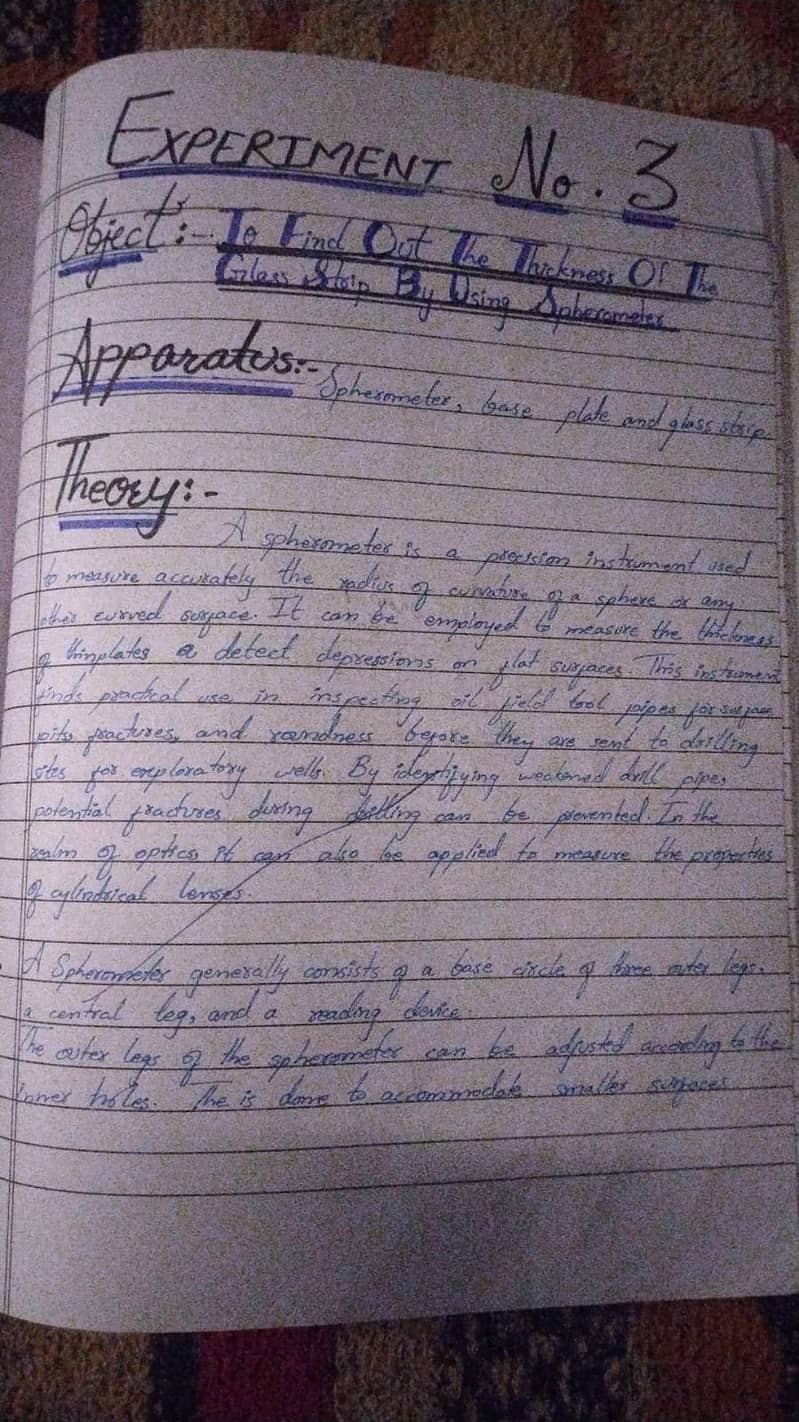 EXPERIMENT No. 3
Object:- To Find Out The Thickness Of The
Glass Strip By Using Spherometer
Apparatus:-
Spherometer, base plate and glass strip.
Theory:-
A spherometer is a precision instrument used
to measure accurately the radius of curvature of a sphere or any
other curved surface. It can be employed to measure the thickness
of thinplates a detect depressions on flat surfaces. This instrument
finds practical use in inspecting oil field tool pipes for surface
pits, fractures, and roundness before they are sent to drilling
sites for exploratory wells. By identifying weakened drill pipes
potential fractures during drilling can be prevented. In the
realm of optics it can also be applied to measure the properties
of cylindrical lenses.
A Spherometer generally consists of a base circle of three outer legs,
a central leg, and a reading device.
The outer legs of the spherometer can be adjusted according to the
inner holes. The is done to accommodate smaller surfaces.